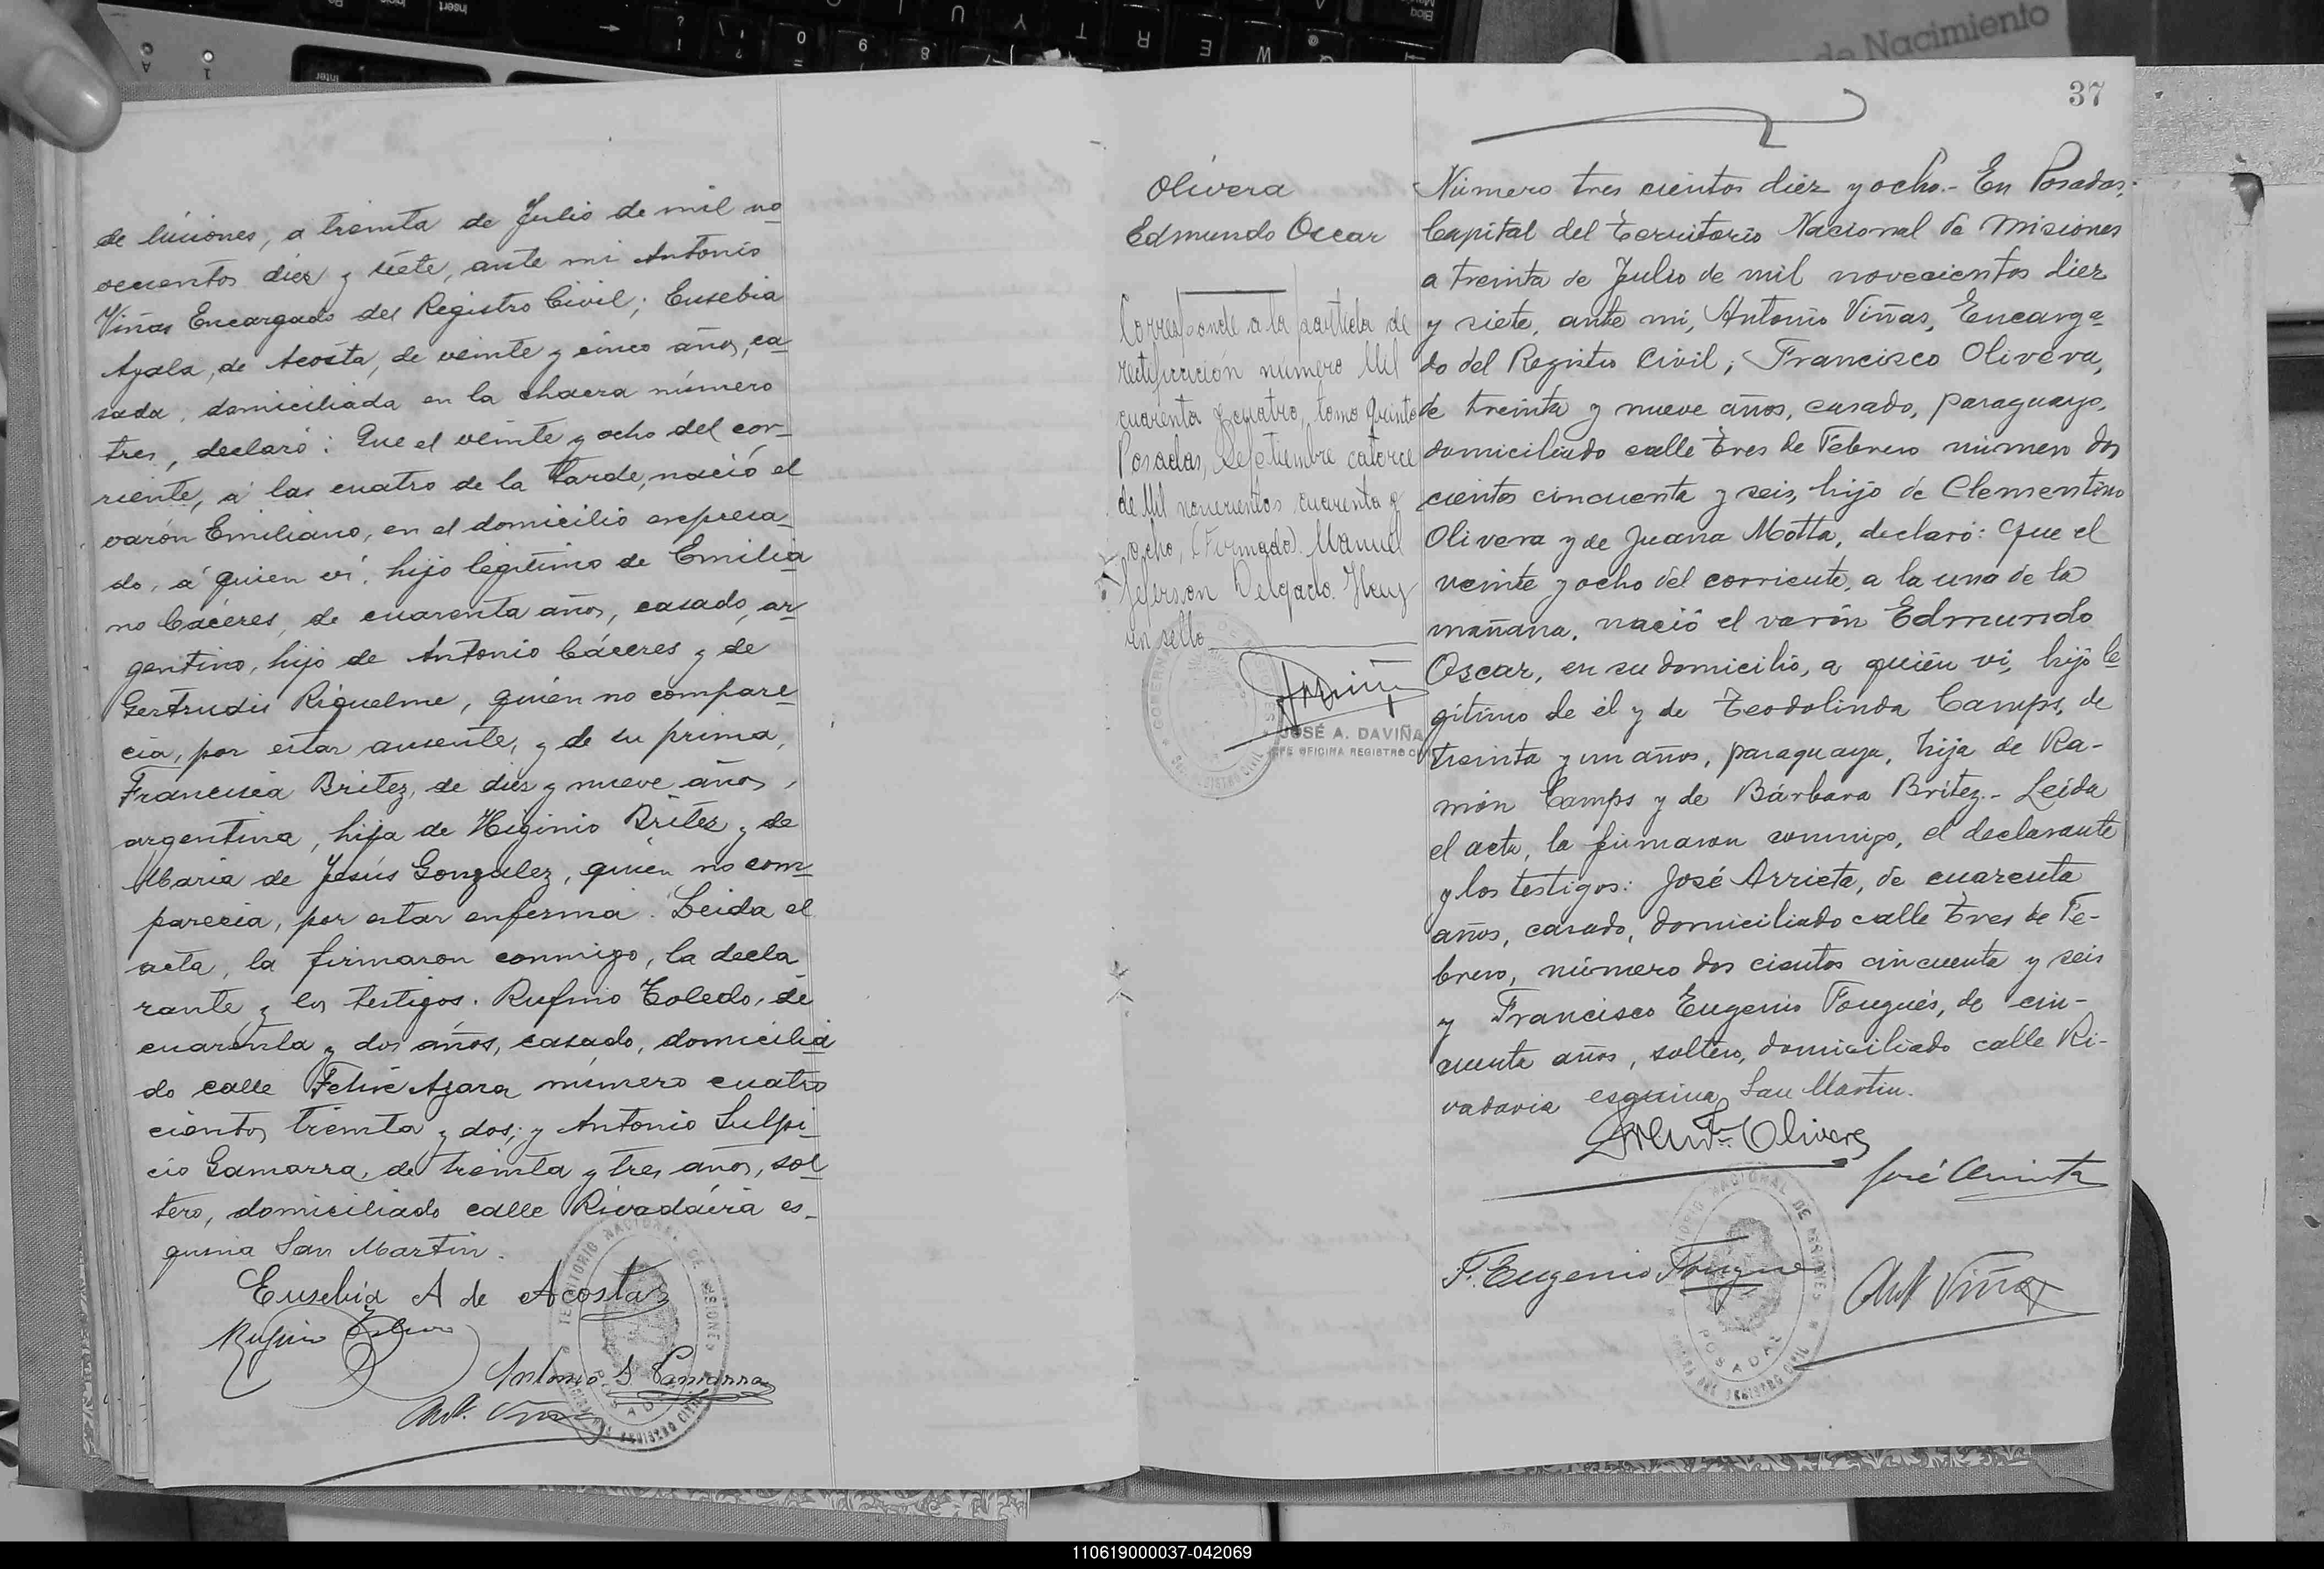 de Nacimiento
de Misiones, a treinta de Julio de mil no
vecientos diez y siete, ante mi Antonio
Viñas Encargado del Registro Civil; Eusebia
Ayala, de Acosta, de veinte y cinco años, ca
sada, domiciliada en la chacra número
tres, declaró: Que el veinte y ocho del cor-
riente, á las cuatro de la tarde, nació el
varón Emiliano, en el domicilio expresa-
do, á quien vi, hijo legítimo de Emilia
no Cáceres, de cuarenta años, casado, ar
gentino, hijo de Antonio Cáceres y de
Gertrudis Riquelme, quién no compare
cia, por estar ausente, y de su prima,
Francisca Britez, de diez y nueve años,
argentina, hija de Higinio Britez y de
Maria de Jesús González, quién no com-
parecia, por estar enferma. Leida el
acta, la firmaron conmigo, la decla
rante y los testigos. Rufino Toledo, de
cuarenta y dos años, casado, domicilia
do calle Felix Azara número cuatro
cientos treinta y dos; y Antonio Sulpi-
cio Gamarra, de treinta y tres años, sol
tero, domiciliado calle Rivadavia es-
quina San Martin.
Eusebia A de Acosta
Antonio S Gamarra
Ant. Viñas
TERRITORIO NACIONAL DE MISIONES
POSADAS
37
Olivera
Edmundo Oscar
Corresponde a la partida de
rectificación número Mil
cuarenta y cuatro, tomo Quinto
Posadas, Septiembre catorce
de Mil novecientos cuarenta y
ocho, (Firmado). Manuel
Jeferson Delgado. Hay
un sello
JOSÉ A. DAVIÑA
JEFE OFICINA REGISTRO CIVIL
Número tres cientos diez y ocho.- En Posadas,
Capital del Territorio Nacional de Misiones
a treinta de Julio de mil novecientos diez
y siete, ante mi, Antonio Viñas, Encarga
do del Registro Civil; Francisco Olivera,
de treinta y nueve años, casado, paraguayo,
domiciliado calle Tres de Febrero número dos
cientos cincuenta y seis, hijo de Clementino
Olivera y de Juana Motta, declaró: Que el
veinte y ocho del corriente, a la una de la
mañana, nació el varón Edmundo
Oscar, en su domicilio, a quién vi, hijo le
gítimo de él y de Teodolinda Camps, de
treinta y un años, paraguaya, hija de Ra-
món Camps y de Bárbara Britez.- Leida
el acta, la firmaron conmigo, el declarante
y los testigos: José Arrieta, de cuarenta
años, casado, domiciliado calle Tres de Fe-
brero, número dos cientos cincuenta y seis
y Francisco Eugenio Fougués, de cin-
cuenta años, soltero, domiciliado calle Ri-
vadavia esquina San Martin.
Olivera
José Arrieta
F. Eugenio Fougués
Ant Viñas
TERRITORIO NACIONAL DE MISIONES
POSADAS
OFICINA DEL REGISTRO CIVIL
110619000037-042069